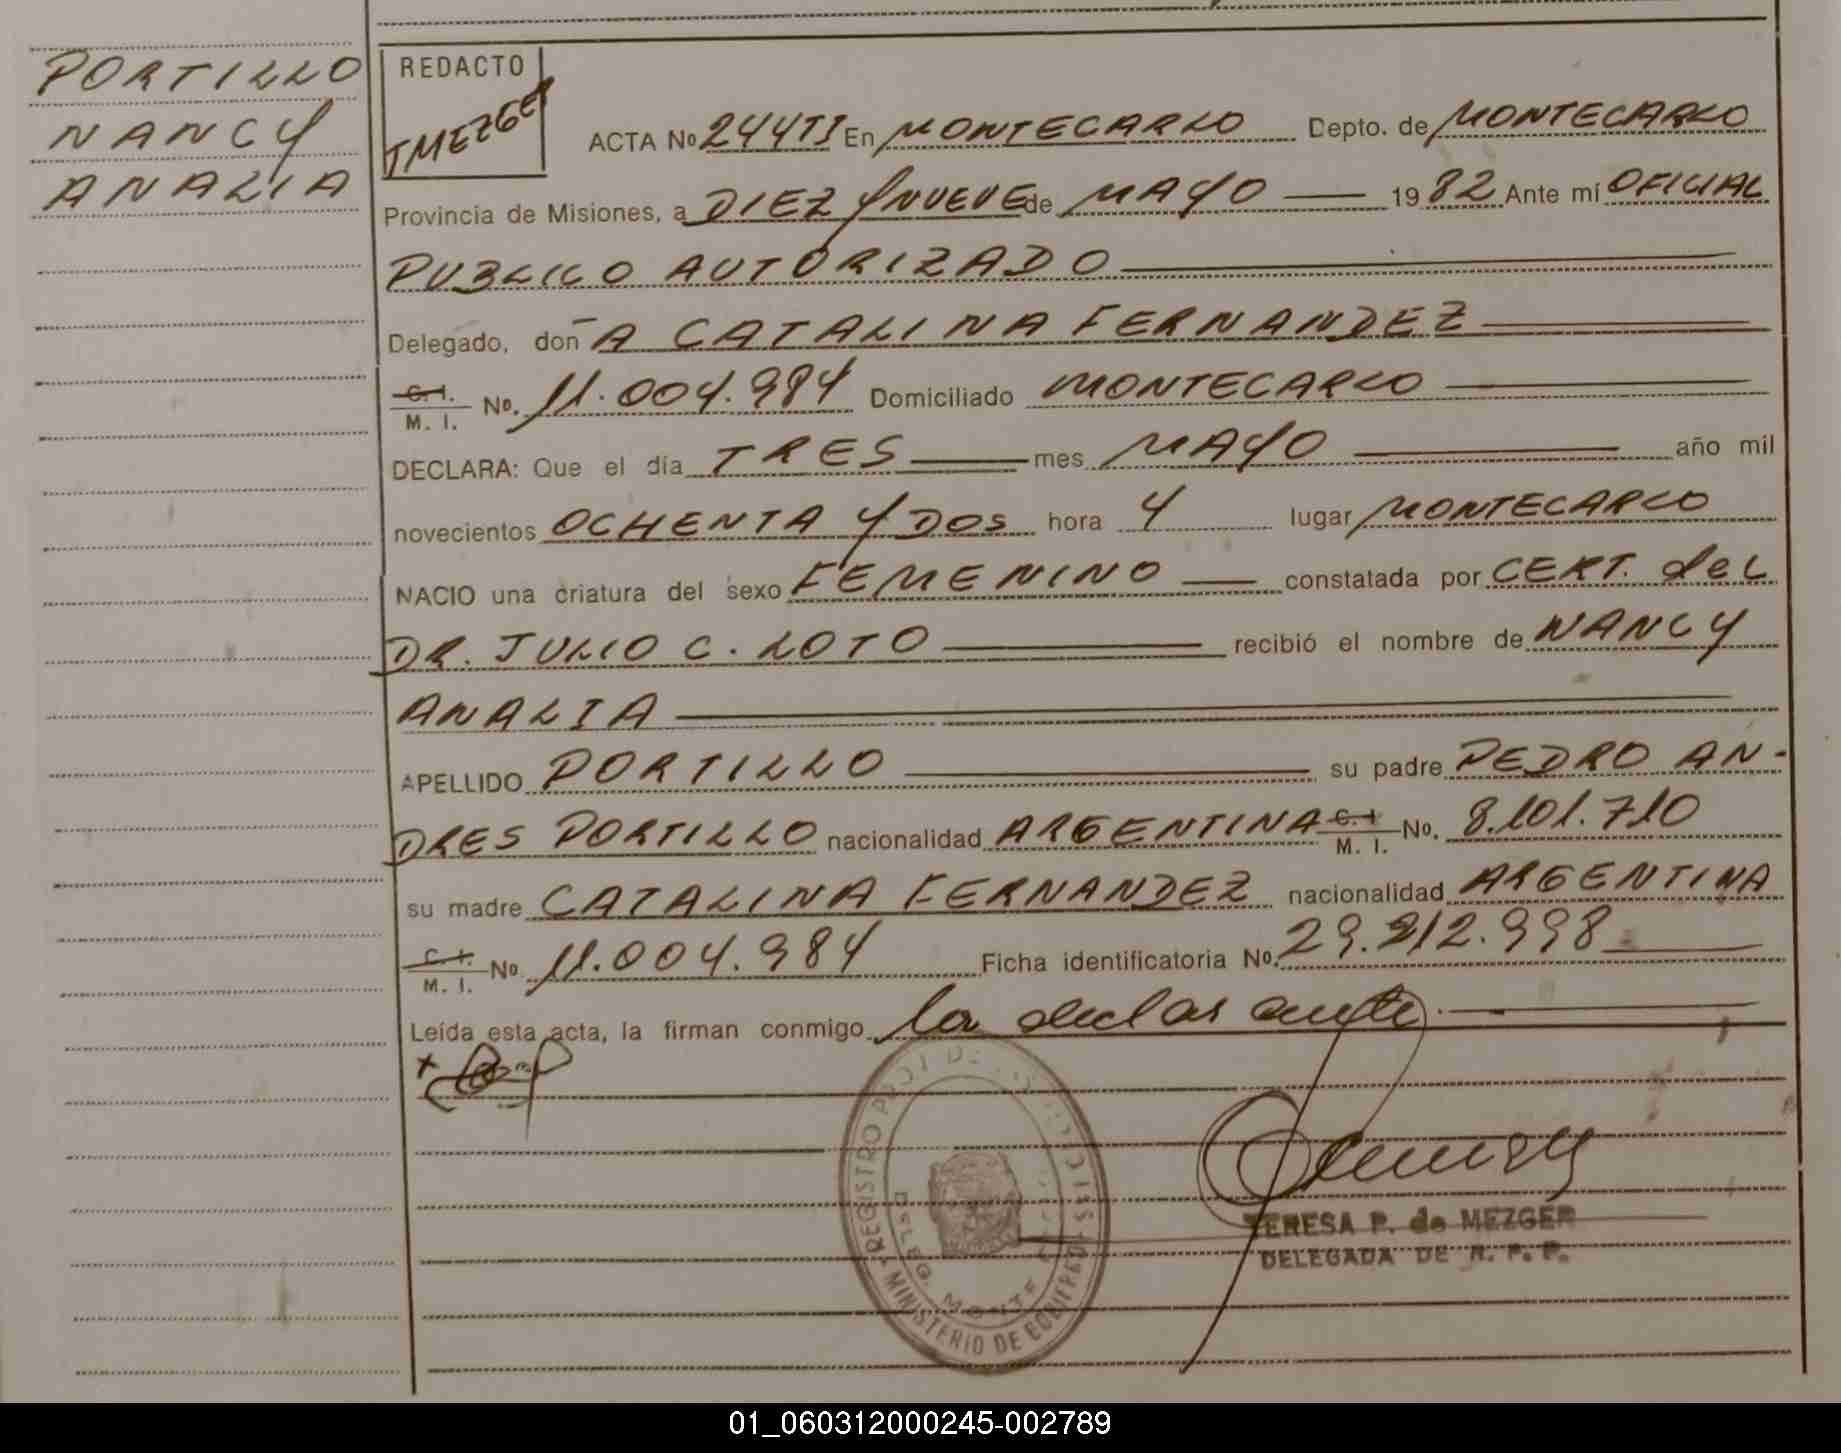 PORTILLO
NANCY
ANALIA
REDACTO
TMEZGER
ACTA Nº 244TI En MONTECARLO Depto. de MONTECARLO
Provincia de Misiones, a DIEZ Y NUEVE de MAYO 1982 Ante mí OFICIAL
PUBLICO AUTORIZADO
Delegado, don A CATALINA FERNANDEZ
C. I. M. I. Nº. 11.004.984 Domiciliado MONTECARLO
DECLARA: Que el día TRES mes MAYO año mil
novecientos OCHENTA Y DOS hora 4 lugar MONTECARLO
NACIO una criatura del sexo FEMENINO constatada por CERT. del
DR. JULIO C. LOTO recibió el nombre de NANCY
ANALIA
APELLIDO PORTILLO su padre PEDRO AN-
DRES PORTILLO nacionalidad ARGENTINA C. I. M. I. Nº. 8.101.710
su madre CATALINA FERNANDEZ nacionalidad ARGENTINA
C. I. M. I. Nº 11.004.984 Ficha identificatoria Nº. 29.212.998
Leída esta acta, la firman conmigo la declarante
REGISTRO PROV. DE LAS PERSONAS
DELEG. MONTE CARLO
MINISTERIO DE GOBIERNO
TERESA P. de MEZGER
DELEGADA DE R. P. P.
01_060312000245-002789